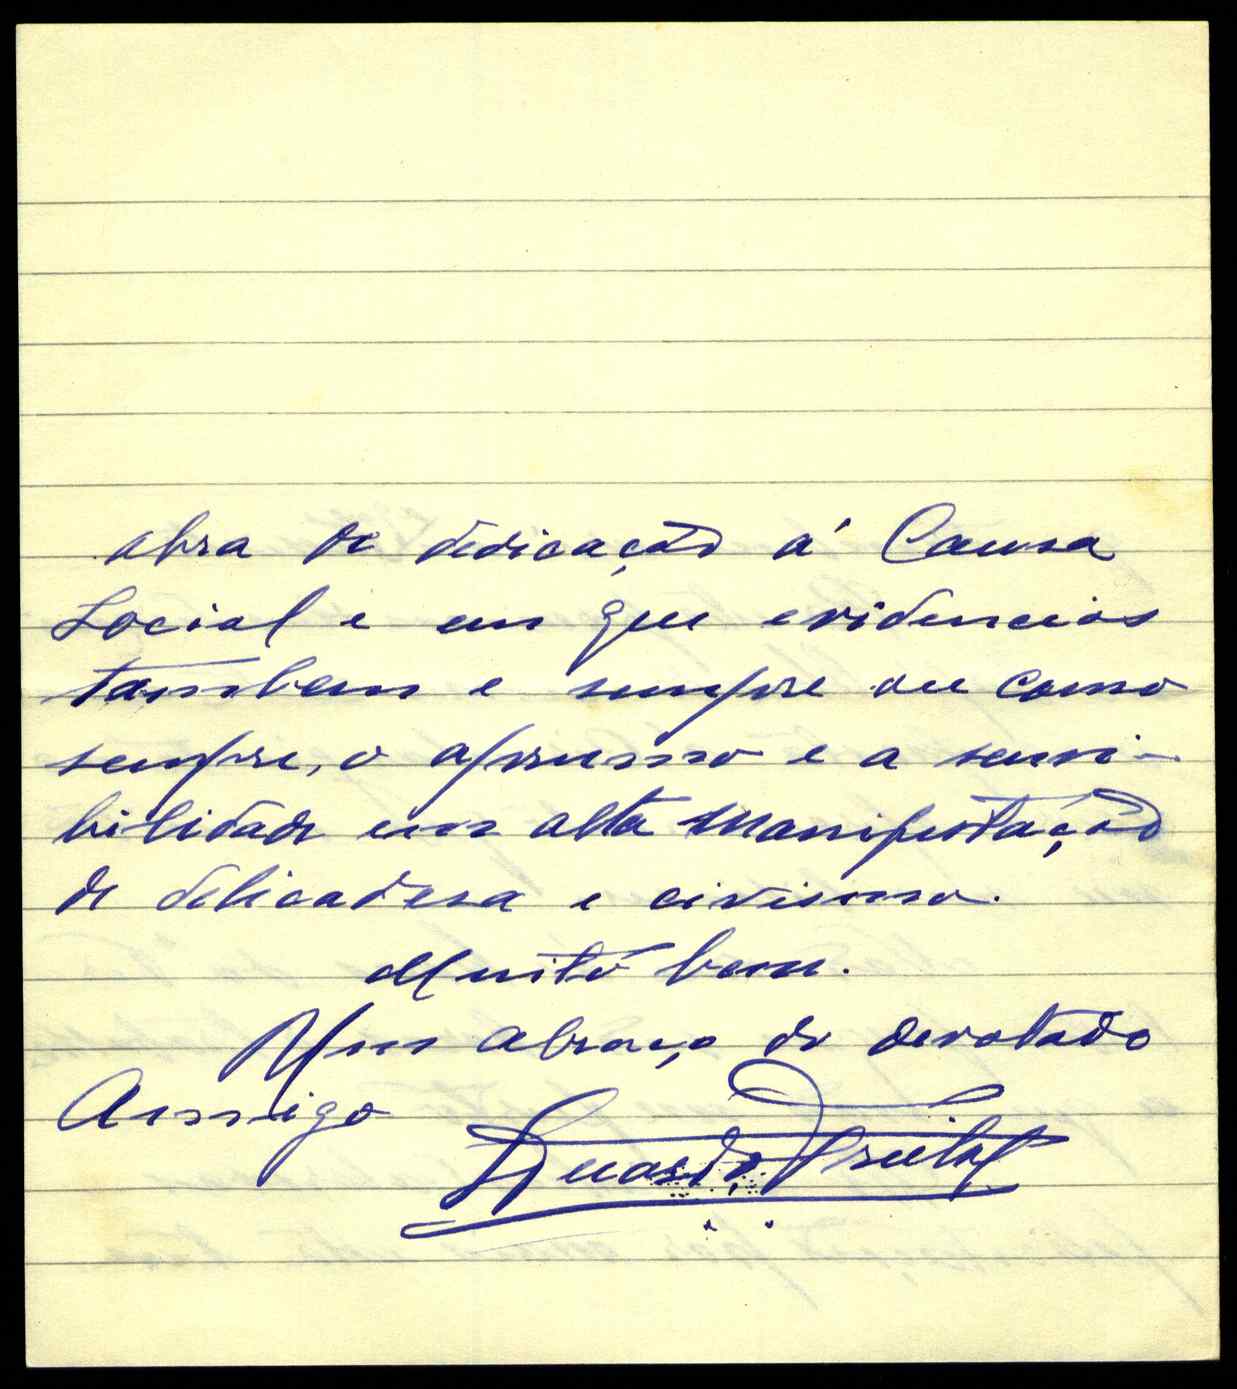 obra de dedicação á Causa
Social e em que evidencias
tambem e sempre ou como
sempre, o apresso e a sensi-
bilidade em alta manifestação
de delicadesa e civismo.
Muito bem.
Um abraço do devotado
Amigo
Eduardo Freitas